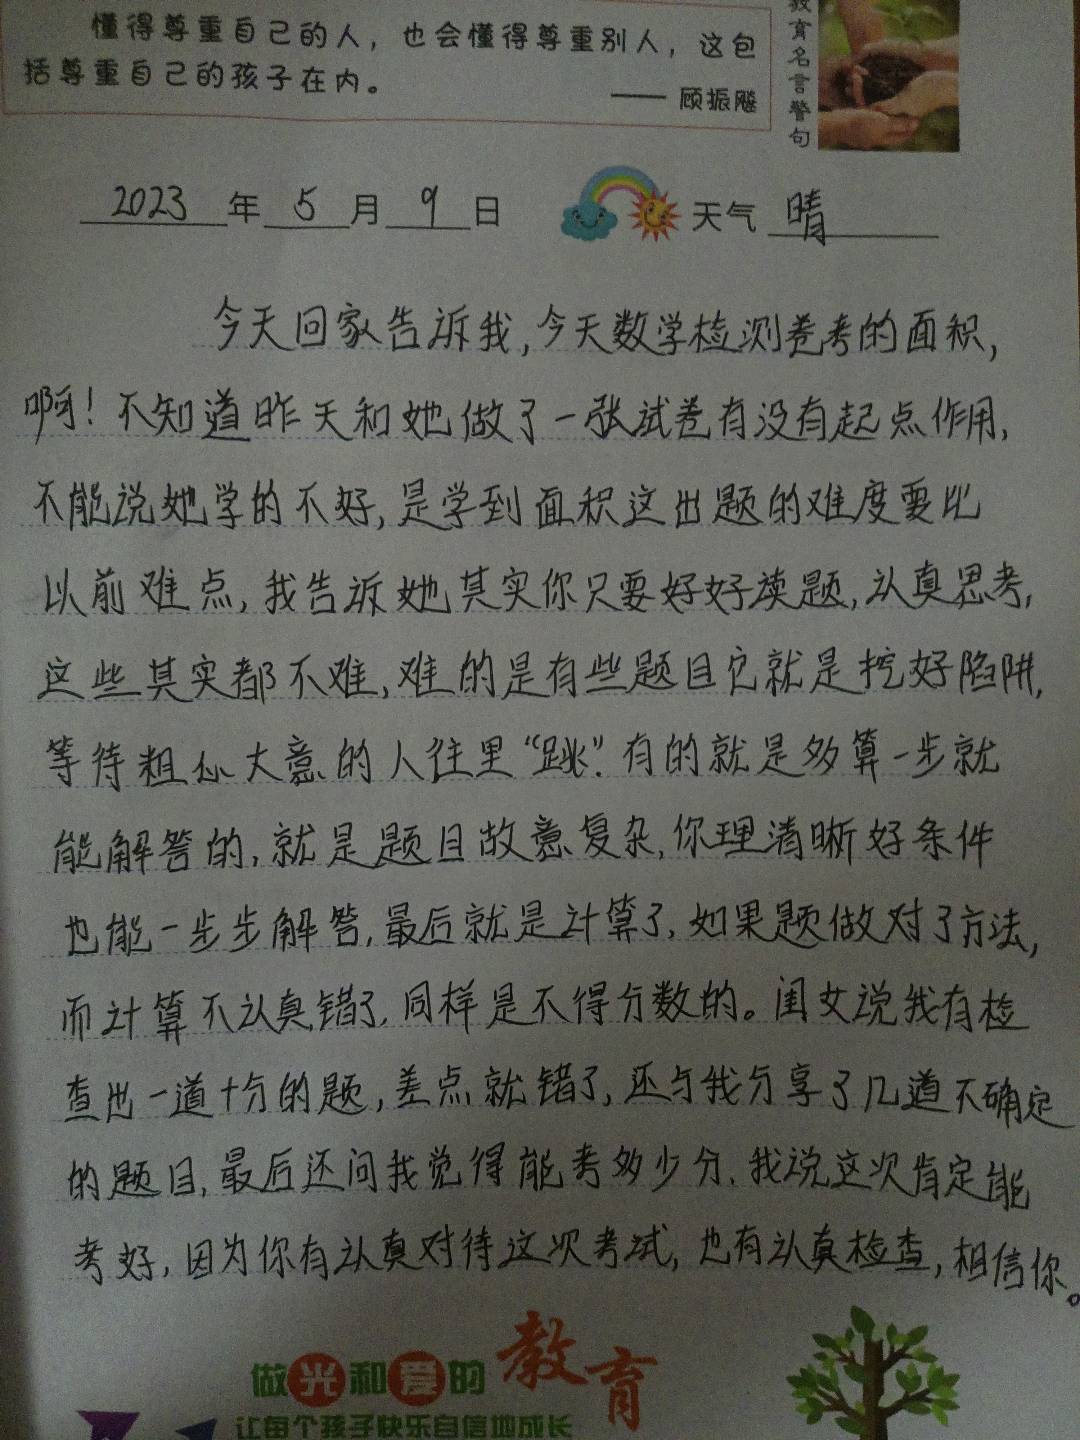 懂得尊重自己的人，也会懂得尊重别人，这包
括尊重自己的孩子在内。
—— 顾振飚
教育名言警句
2023 年 5 月 9 日 天气 晴
今天回家告诉我,今天数学检测卷考的面积,
啊!不知道昨天和她做了一张试卷有没有起点作用,
不能说她学的不好,是学到面积这出题的难度要比
以前难点,我告诉她其实你只要好好读题,认真思考,
这些其实都不难,难的是有些题目它就是挖好陷阱,
等待粗心大意的人往里“跳”.有的就是多算一步就
能解答的,就是题目故意复杂,你理清晰好条件
也能一步步解答,最后就是计算了,如果题做对了方法,
而计算不认真错了,同样是不得分数的。闺女说我有检
查出一道十分的题,差点就错了,还与我分享了几道不确定
的题目,最后还问我觉得能考多少分,我说这次肯定能
考好,因为你有认真对待这次考试,也有认真检查,相信你。
做光和爱的教育
让每个孩子快乐自信地成长